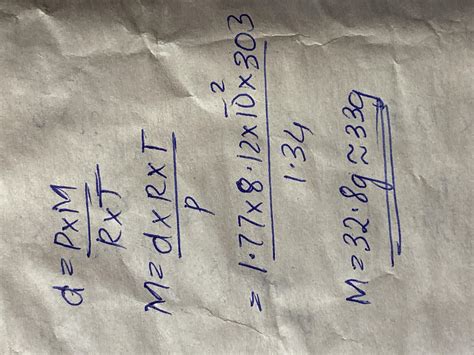 d = P×M / R×T
M = d×R×T / P
= 1.77×8.12×10⁻²×303 / 1.34
M = 32.8g ≈ 33g